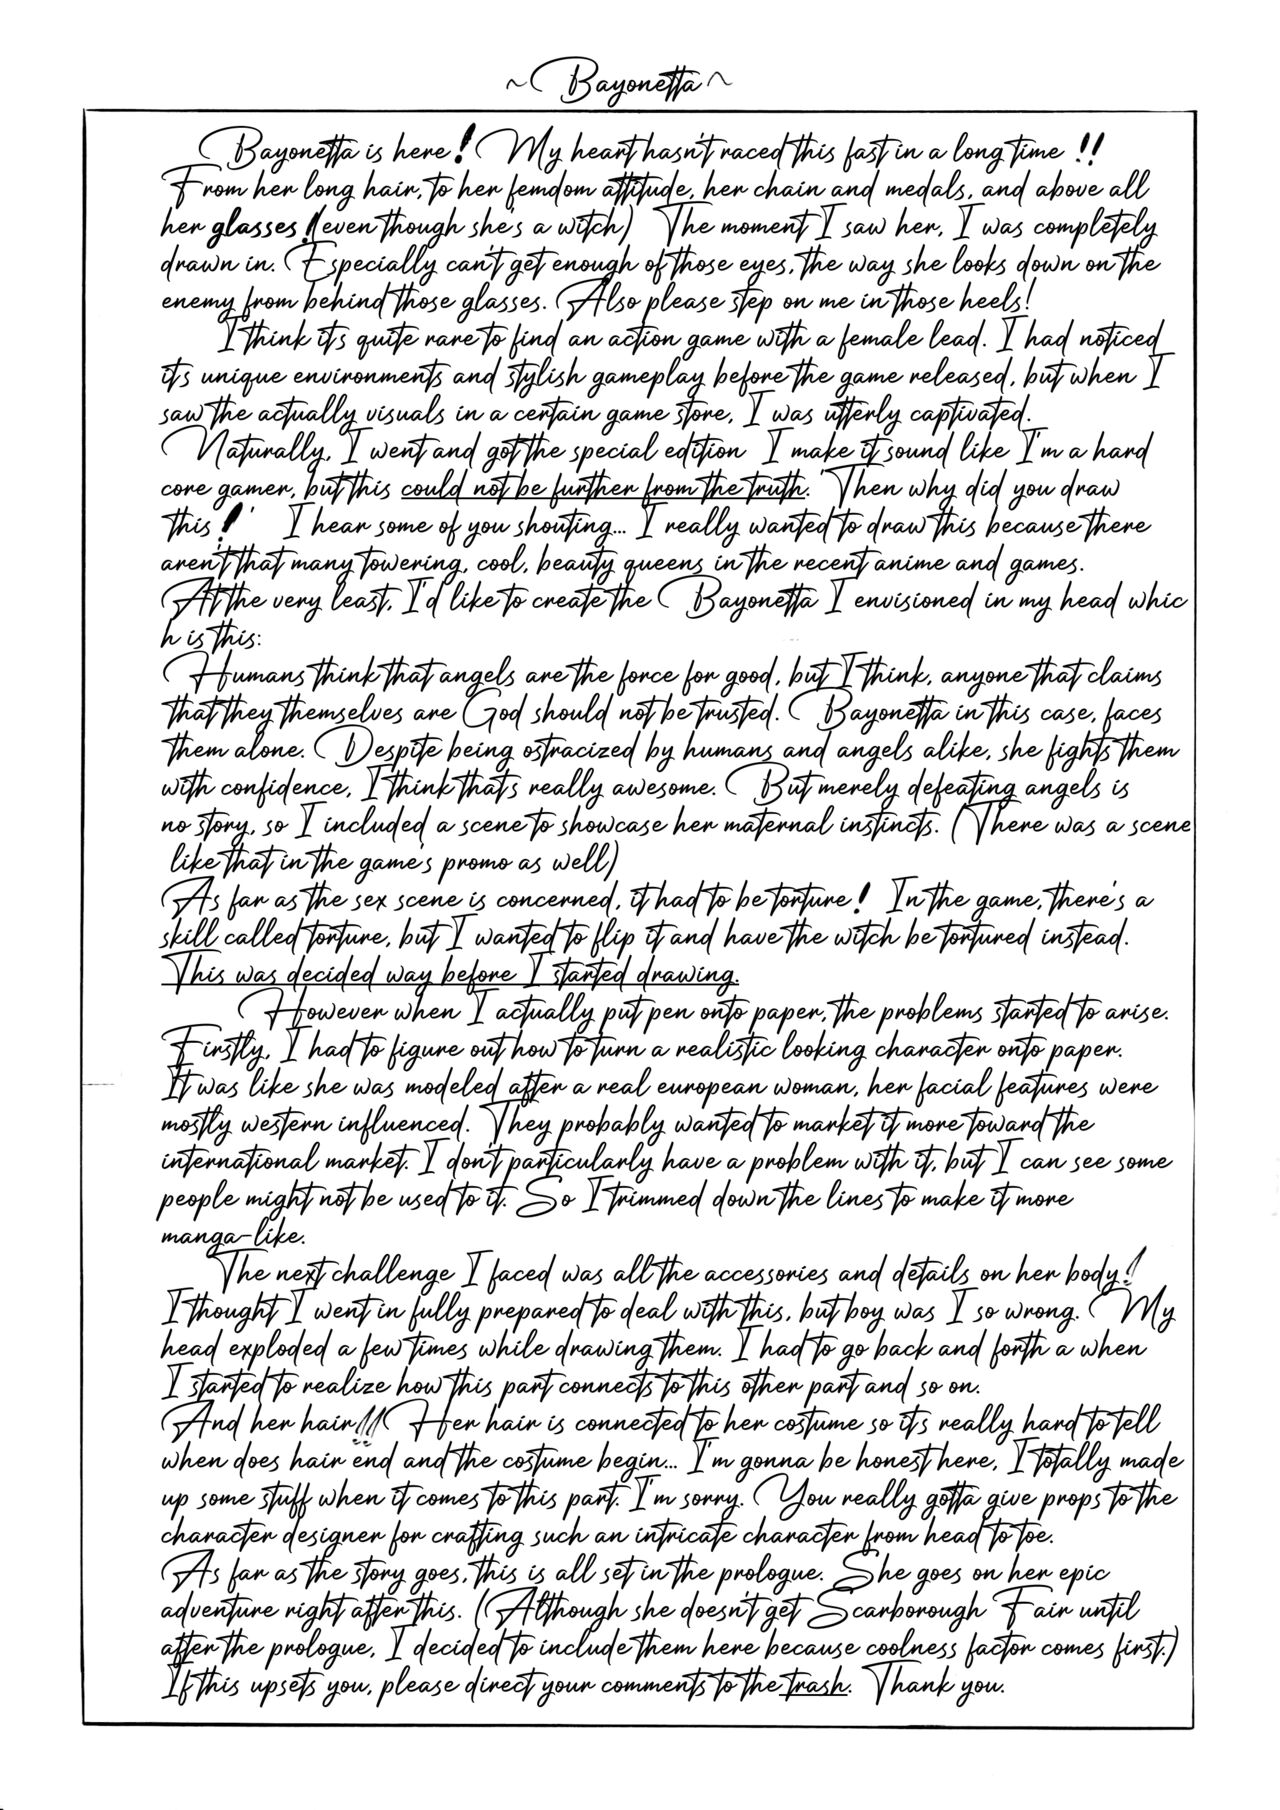 ~Bayonetta~
Bayonetta is here! My heart hasn't raced this fast in a long time !!
From her long hair, to her femdom attitude, her chain and medals, and above all
her glasses! (even though she's a witch) The moment I saw her, I was completely
drawn in. Especially can't get enough of those eyes, the way she looks down on the
enemy from behind those glasses. Also please step on me in those heels!
I think it's quite rare to find an action game with a female lead. I had noticed
it's unique environments and stylish gameplay before the game released, but when I
saw the actually visuals in a certain game store, I was utterly captivated.
Naturally, I went and got the special edition I make it sound like I'm a hard
core gamer, but this could not be further from the truth. 'Then why did you draw
this!' I hear some of you shouting... I really wanted to draw this because there
aren't that many towering, cool, beauty queens in the recent anime and games.
At the very least, I'd like to create the Bayonetta I envisioned in my head whic
h is this:
Humans think that angels are the force for good, but I think, anyone that claims
that they themselves are God should not be trusted. Bayonetta in this case, faces
them alone. Despite being ostracized by humans and angels alike, she fights them
with confidence, I think that's really awesome. But merely defeating angels is
no story, so I included a scene to showcase her maternal instincts. (There was a scene
like that in the game's promo as well)
As far as the sex scene is concerned, it had to be torture! In the game, there's a
skill called torture, but I wanted to flip it and have the witch be tortured instead.
This was decided way before I started drawing.
However when I actually put pen onto paper, the problems started to arise.
Firstly, I had to figure out how to turn a realistic looking character onto paper.
It was like she was modeled after a real european woman, her facial features were
mostly western influenced. They probably wanted to market it more toward the
international market. I don't particularly have a problem with it, but I can see some
people might not be used to it. So I trimmed down the lines to make it more
manga-like.
The next challenge I faced was all the accessories and details on her body!
I thought I went in fully prepared to deal with this, but boy was I so wrong. My
head exploded a few times while drawing them. I had to go back and forth a when
I started to realize how this part connects to this other part and so on.
And her hair!! Her hair is connected to her costume so it's really hard to tell
when does hair end and the costume begin... I'm gonna be honest here, I totally made
up some stuff when it comes to this part. I'm sorry. You really gotta give props to the
character designer for crafting such an intricate character from head to toe.
As far as the story goes, this is all set in the prologue. She goes on her epic
adventure right after this. (Although she doesn't get Scarborough Fair until
after the prologue, I decided to include them here because coolness factor comes first.)
If this upsets you, please direct your comments to the trash. Thank you.